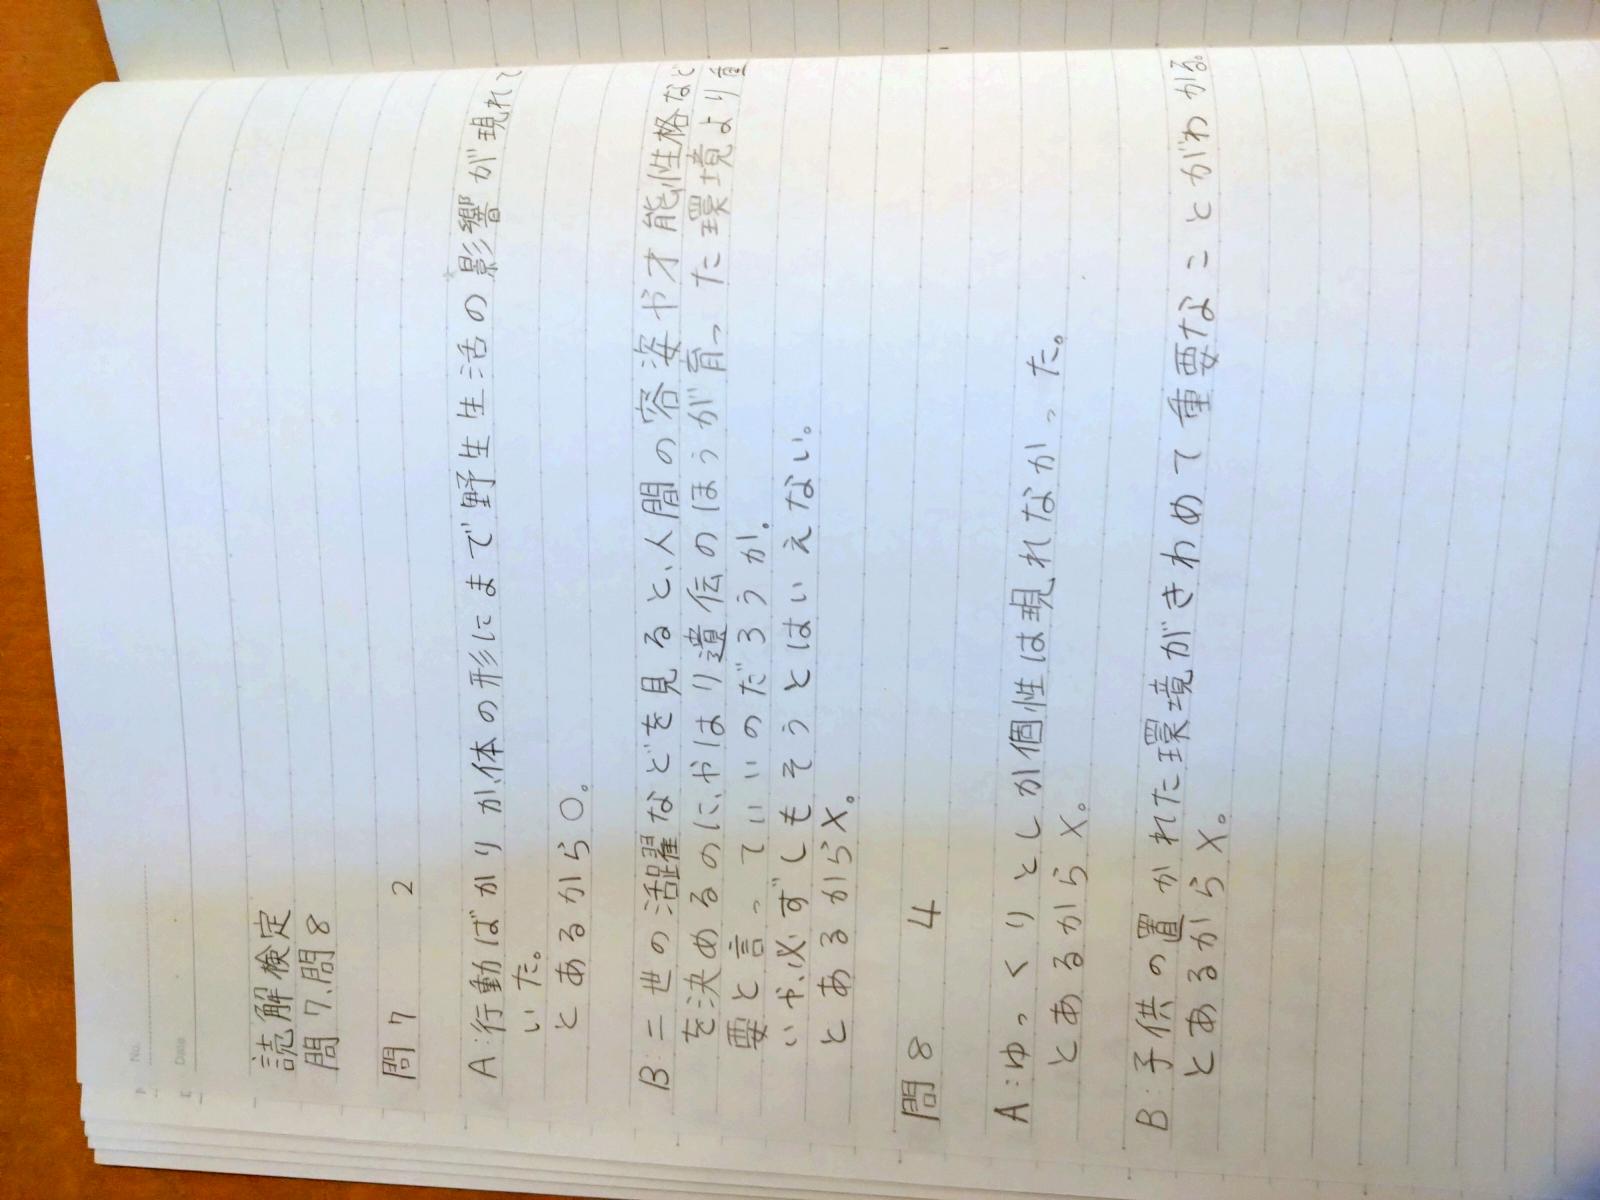 No.
Date
読解検定
問7、問8
問7 2
A:行動ばかりか、体の形にまで野生生活の影響が現れて
いた。
とあるから○。
B:二世の活躍などを見ると、人間の容姿や才能性格など
を決めるのに、やはり遺伝のほうが育った環境より重
要と言っていいのだろうか。
いや、必ずしもそうとはいえない。
とあるから×。
問8 4
A:ゆっくりとしか個性は現れなかった。
とあるから×。
B:子供の置かれた環境がきわめて重要なことがわかる。
とあるから×。